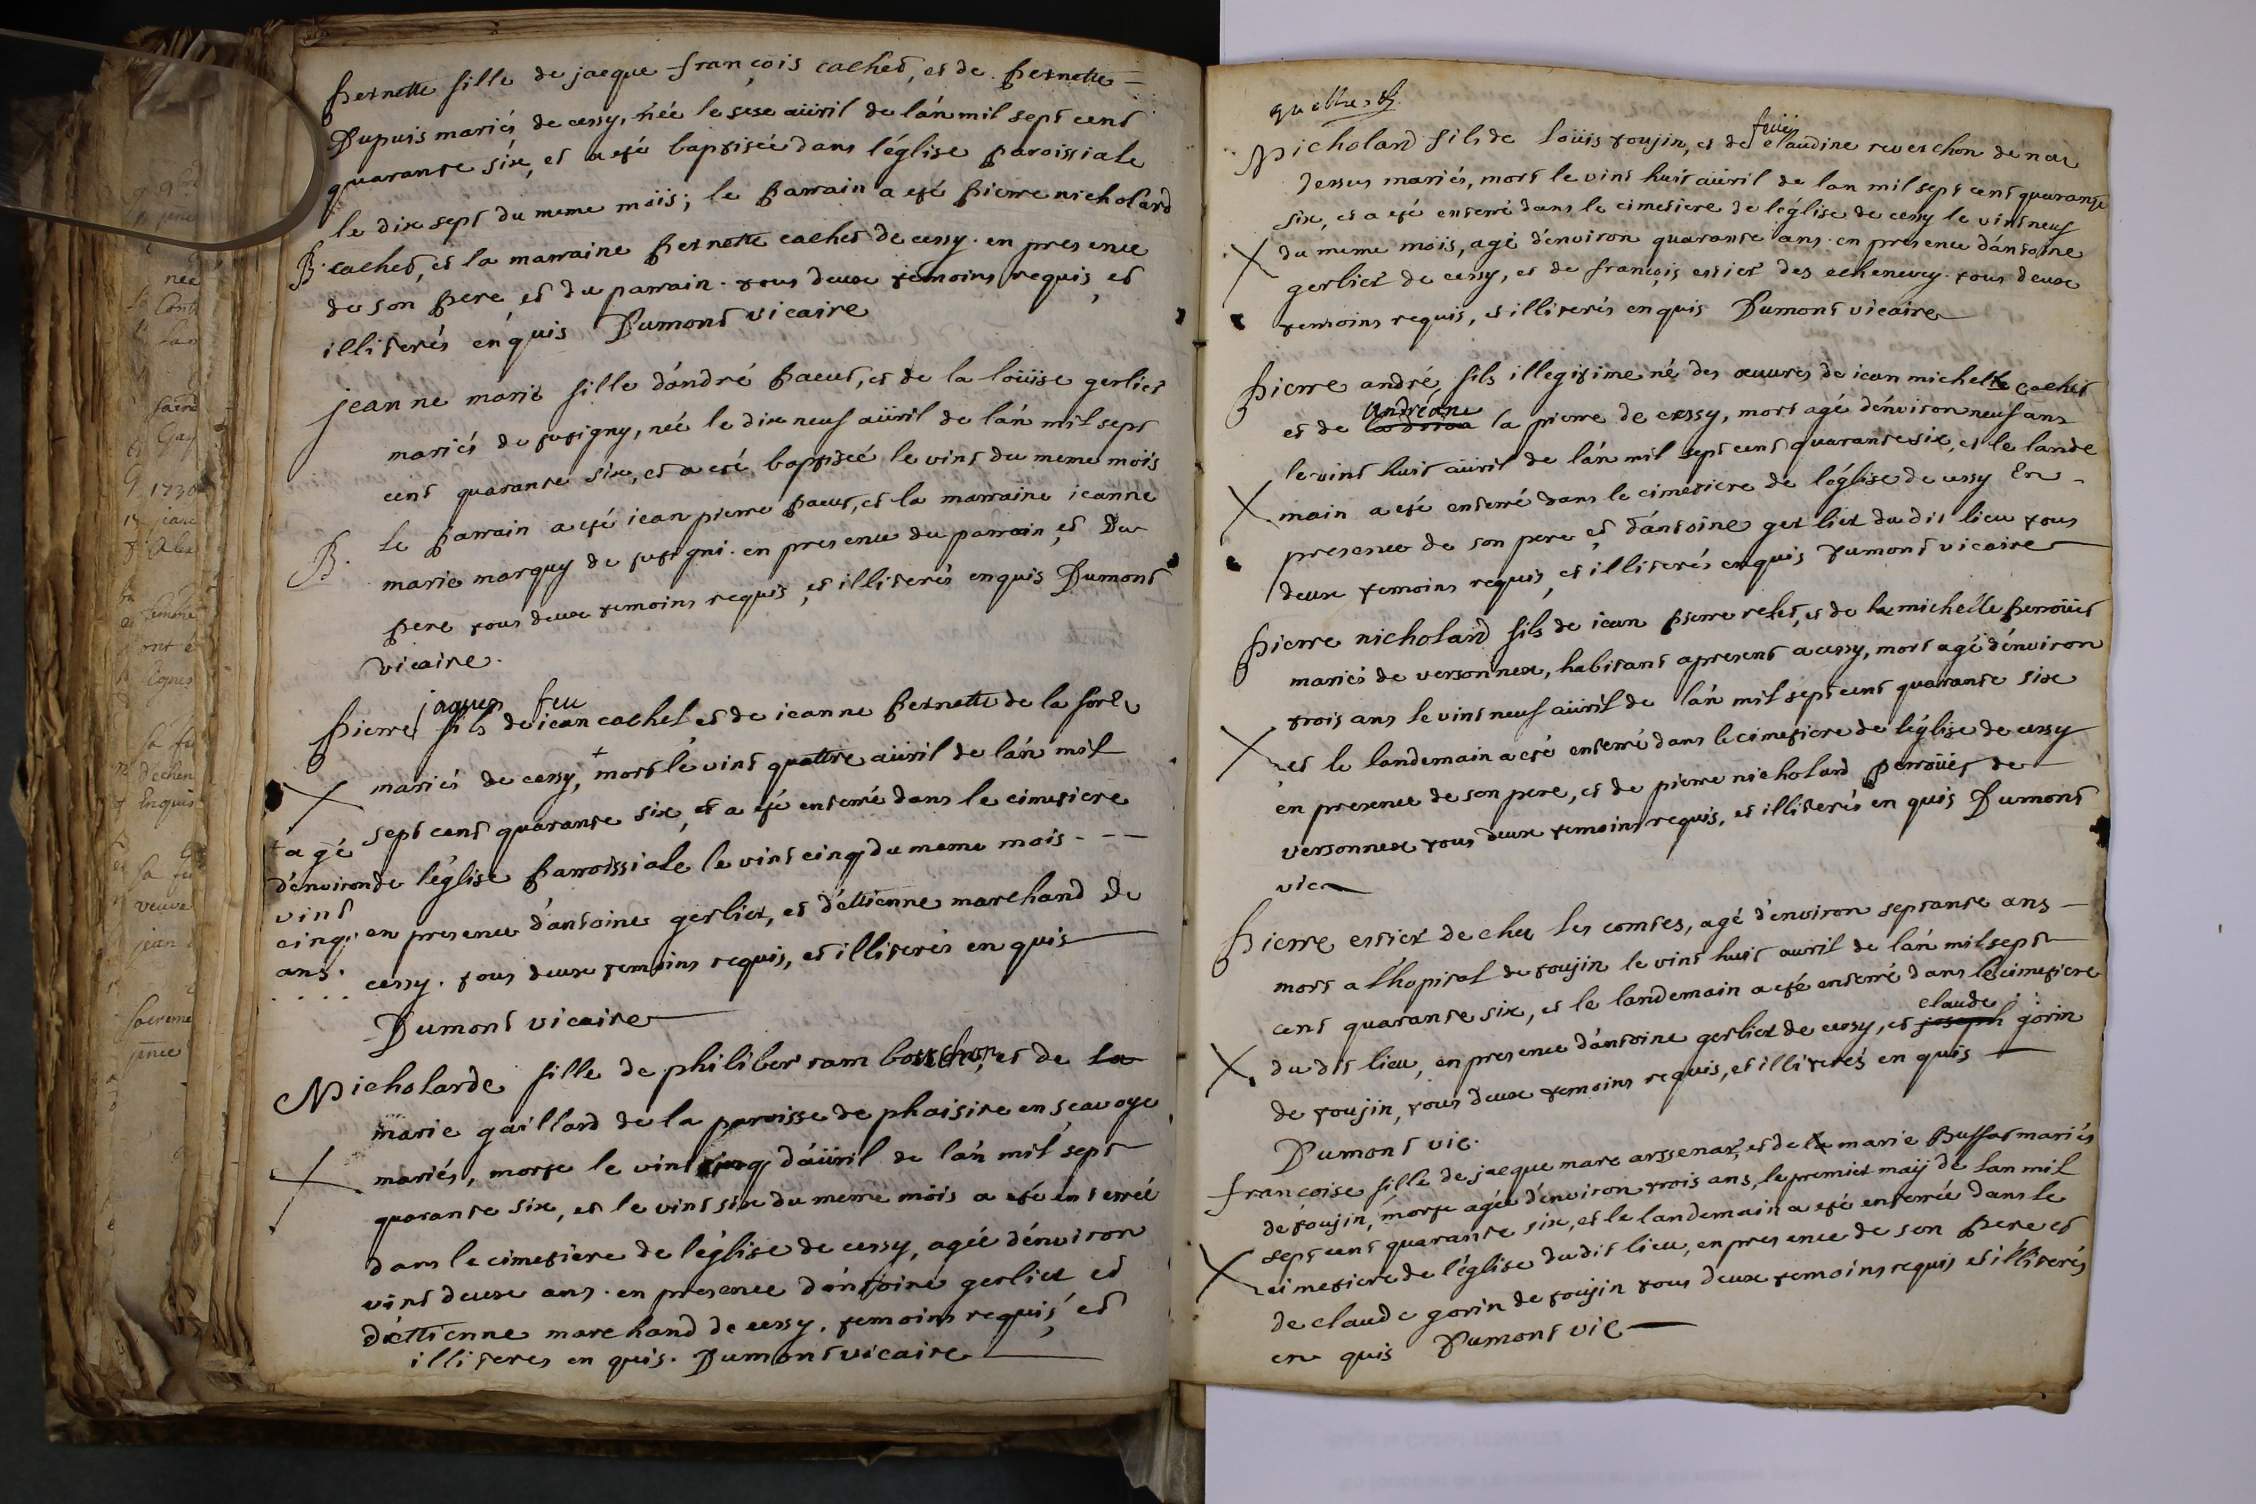 pernette fille de jacque françois cachet, et de pernette
Dupuis mariés de cessy, née le sese aüril de lán mil sept cent
quarante six, et a eté baptisée dans léglise paroissiale
le dix sept du meme möis; le parrain a eté pierre nicholard
B. cachet, et la marraine pernette cachet de cessy. en presence
de son pere et du parrain. tous deux temoins requis, et
illiterés enquis Dumont vicaire
jeanne marie fille dándré pacut, et de la loüise gerliet
mariés de tutigny, née le dix neuf aüril de lán mil sept
cent quarante six, et a eté baptisée le vint du meme möis
B. le parrain a eté jean pierre pacut, et la marraine jeanne
marie marquy de tutigni. en presence du parrain et Du
pere tous deux temoins requis, et illiterés enquis Dumont
vicaire.
jaques feu
pierre fils de jean cachet et de jeanne pernette de la forle
mariés de cessy, + mort le vint quattre aüril de lán mil
sept cent quarante six, et a eté enterré dans le cimetiere
+ agé
d'environ
vint
cinq
ans.
de léglise parroissiale le vint cinq du meme mois - - -
en presence d'antoine gerliet, et d'éttienne marchand De
cessy. tous deux temoins requis, et illiterés en quis
Dumont vicaire
Nicholarde fille de philiber rambosson, et de la
marie gaillard de la paroisse de phaisire en scavoye
mariés, morte le vint cinq d'aüril de lán mil sept
quarante six, et le vint six du meme möis a eté enterrée
dans le cimetiere de léglise de cessy, agée dénviron
vint deux ans. en presence d'antoine gerliet et
d'éttienne marchand de cessy. temoins requis, et
illiteres en quis. Dumont vicaire
quattre
Nicholard fils de loüis toujin, et de feüe claudine reverchon de nae
dessus mariés, mort le vint huit aüril de lan mil sept cent quarante
six, et a eté enterré dans le cimetiere de léglise de cessy le vint neuf
du meme möis, agé d'environ quarante ans. en presence dantoine
gerliet de cessy, et de françois estiet des echenevey. tous deux
temoins requis, et illiterés enquis Dumont vicaire
pierre andré, fils illegitime né des œuures de jean michelle cachet
andréane
et de la pierre de cessy, mort agé dénviron neuf ans
le vint huit aüril de lán mil sept cent quarante six, et le lande
main a eté enterré dans le cimetiere de léglise de cessy En
presence de son pere et dántoine gerliet du dit lieu tous
deux temoins requis, et illiterés enquis Dumont vicaire
pierre nicholard fils de jean pierre relet, et de la michelle perroüet
mariés de versonnex, habitant apresent a cessy, mort agé dénviron
trois ans le vint neuf aüril de lán mil sept cent quarante six
et le landemain a eté enterré dans le cimetiere de léglise de cessy
en presence de son pere, et de pierre nicholard perroüet de
versonnex tous deux temoins requis, et illiterés en quis Dumont
vic
pierre estiet de chez les comtes, agé d'environ septante ans
mort a l'hopital de toujin le vint huit auril de lán mil sept
cent quarante six, et le landemain a eté enterré dans le cimetiere
claude
du dit lieu, en presence d'antoine gerliet de cessy, et joseph gorin
de toujin, tous deux temoins requis, et illiterés en quis
Dumont vic.
françoise fille de jacque marc arssenat, et de la marie Buffat mariés
de toujin, morte agée d'environ trois ans, le premiet maÿ de lan mil
sept cent quarante six, et le landemain a eté enterrée dans le
cimetiere de léglise du dit lieu, en presence de son pere et
de claude gorin de toujin tous deux temoins requis et illiterés
en quis Dumont vic